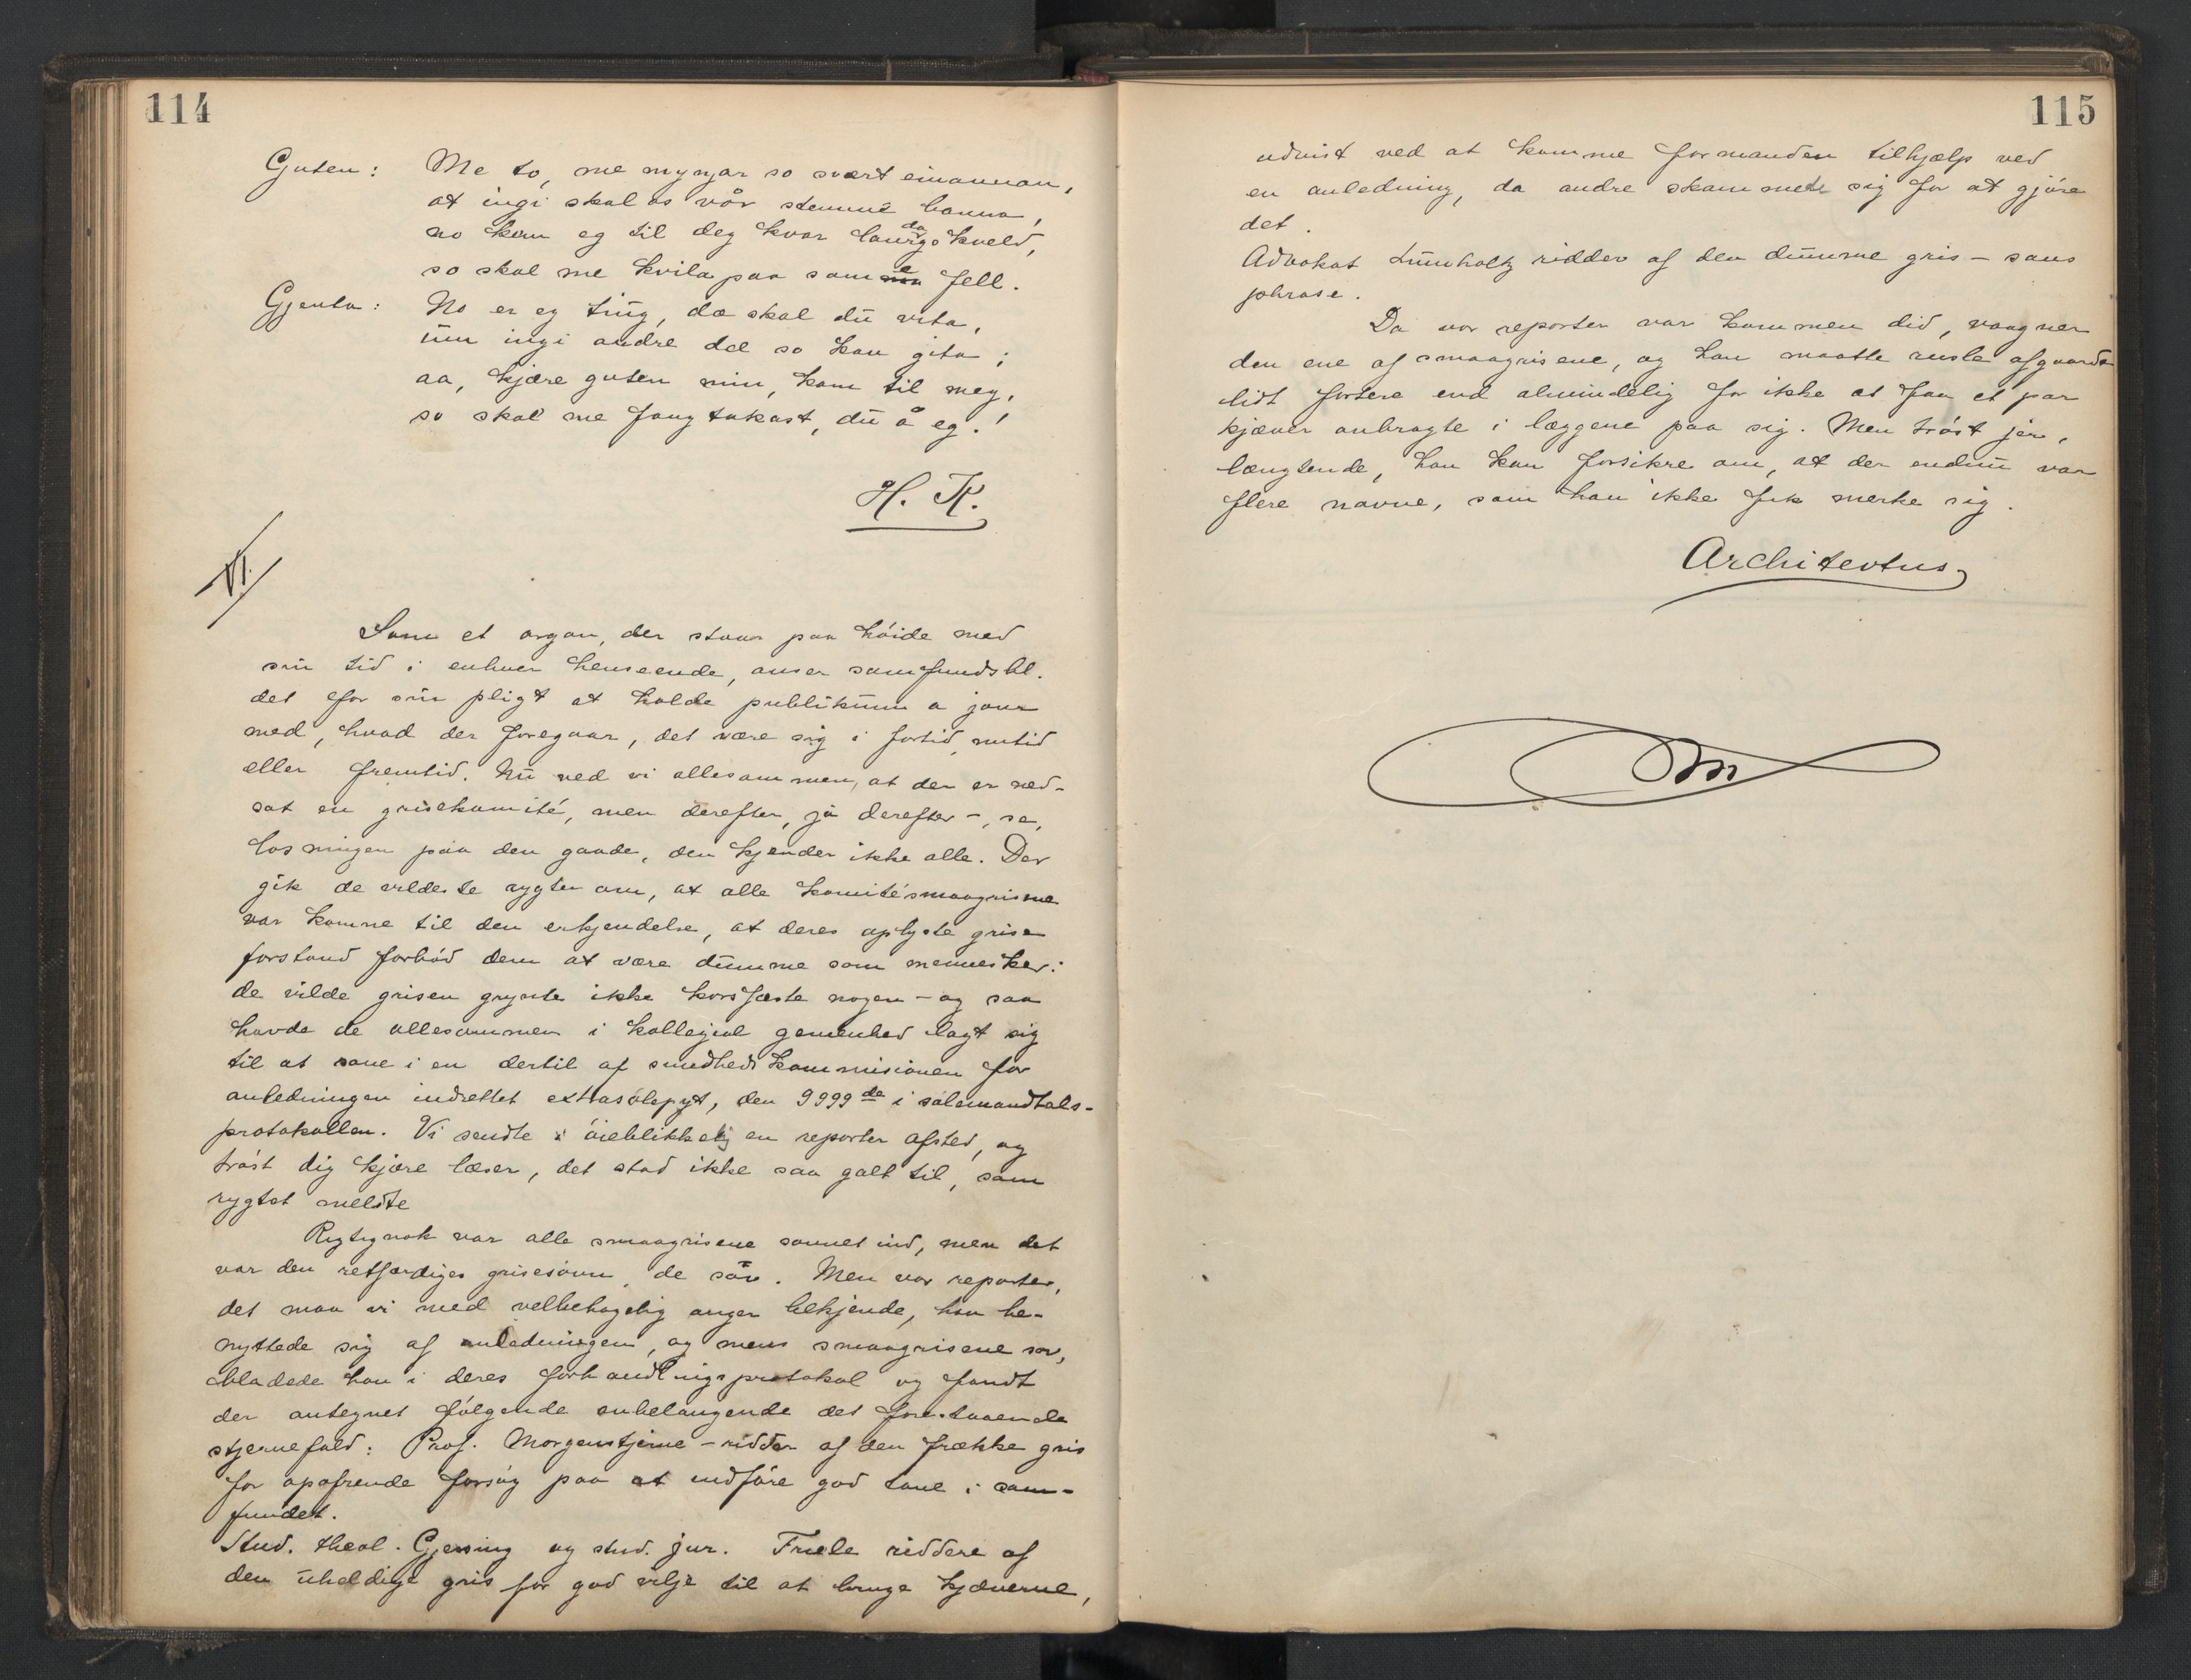 114
Guten: Me to, me mynjar so svært einannan,
at ingi skal os vår stemne banna,
no kem eg til deg kvar laurdagskveld,
so skal me kvila paa samme fell.
Gjenta: No er eg tung, dæ skal dū vita,
ūm ingi andre dæ so kan gita;
aa, kjære guten min, kom til meg,
so skal me fangtakast, dū å eg!
H. K.
VI.
Som et organ, der staar paa høide med
sin tid i enhver henseende, anser samfundsbl.
det for sin pligt at holde publikūm a jour
med, hvad der foregaar, det være sig i fortid, nutid
eller fremtid. Nū ved vi allesammen, at der er ned-
sat en grisekomité, men derefter, ja derefter -, se,
løsningen paa den gaade, den kjender ikke alle. Der
gik de vildeste rygter om, at alle komitésmaagrisene
var komne til den erkjendelse, at deres oplyste grise
forstand forbød dem at være dūmme som mennesker:
de vilde grisen grynte ikke korsfæste nogen - og saa
havde de allesammen i kollegial gemenhed lagt sig
til at sove i en dertil af sundhedskommisionen for
anledningen indrettet extrasølepyt, den 9999de i sølemandtals-
protokollen. Vi sendte øieblikkelig en reporter afsted, og
trøst dig kjære læser, det stod ikke saa galt til, som
rygtet meldte
Rigtignok var alle smaagrisene sovnet ind, men det
var den retfærdiges grisesøvn, de sov. Men vor reporter,
det maa vi med velbehagelig anger bekjende, han be-
nyttede sig af anledningen, og mens smaagrisene sov,
bladede han i deres forhandlingsprotokol og fandt
der antegnet følgende anbelangende det forestaaende
stjernefald: Prof. Morgenstjerne - ridder af den frække gris
for opofrende forsøg paa at indføre god tone i sam-
fundet.
Stud. theol. Gjessing og stud. jur. Friele riddere af
den ūheldige gris for god vilje til at bruge kjæverne,
115
udvist ved at komme formanden tilhjælp ved
en anledning, da andre skammede sig for at gjøre
det.
Advokat Lūmholtz ridder af den dūmme gris - sans
phrase.
Da vor reporter var kommen did, vaagner
den ene af smaagrisene, og han maatte rusle afgaarde
lidt fortere end almindelig for ikke at faa et par
kjæver anbragte i læggene paa sig. Men trøst jer,
længtende, han kan forsikre om, at der endnū var
flere navne, som han ikke fik merke sig.
Architectus